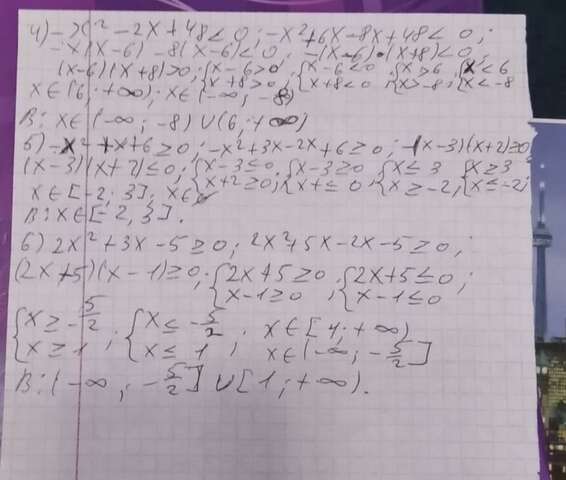 4) -x² -2x+48<0; -x²+6x-8x+48<0;
-x(x-6) -8(x-6)<0; -(x-6)·(x+8)<0;
(x-6)(x+8)>0; {x-6>0 x+8>0; {x-6<0 x+8<0; {x>6 x>-8; {x<6 x<-8
x∈(6; +∞); x∈(-∞; -8)
В: x∈(-∞; -8)∪(6; +∞)
5) -x²+x+6≥0; -x²+3x-2x+6≥0; -(x-3)(x+2)≥0
(x-3)(x+2)≤0; {x-3≤0 x+2≥0; {x-3≥0 x+≤0; {x≤3 x≥-2; {x≥3 x≤-2;
x∈[-2; 3]; x∈
В: x∈[-2, 3].
6) 2x²+3x-5≥0; 2x²+5x-2x-5≥0;
(2x+5)(x-1)≥0; {2x+5≥0 x-1≥0; {2x+5≤0 x-1≤0;
{x≥-5/2 x≥1; {x≤-5/2 x≤1; x∈[1; +∞) x∈(-∞; -5/2]
В: (-∞; -5/2]∪[1; +∞).